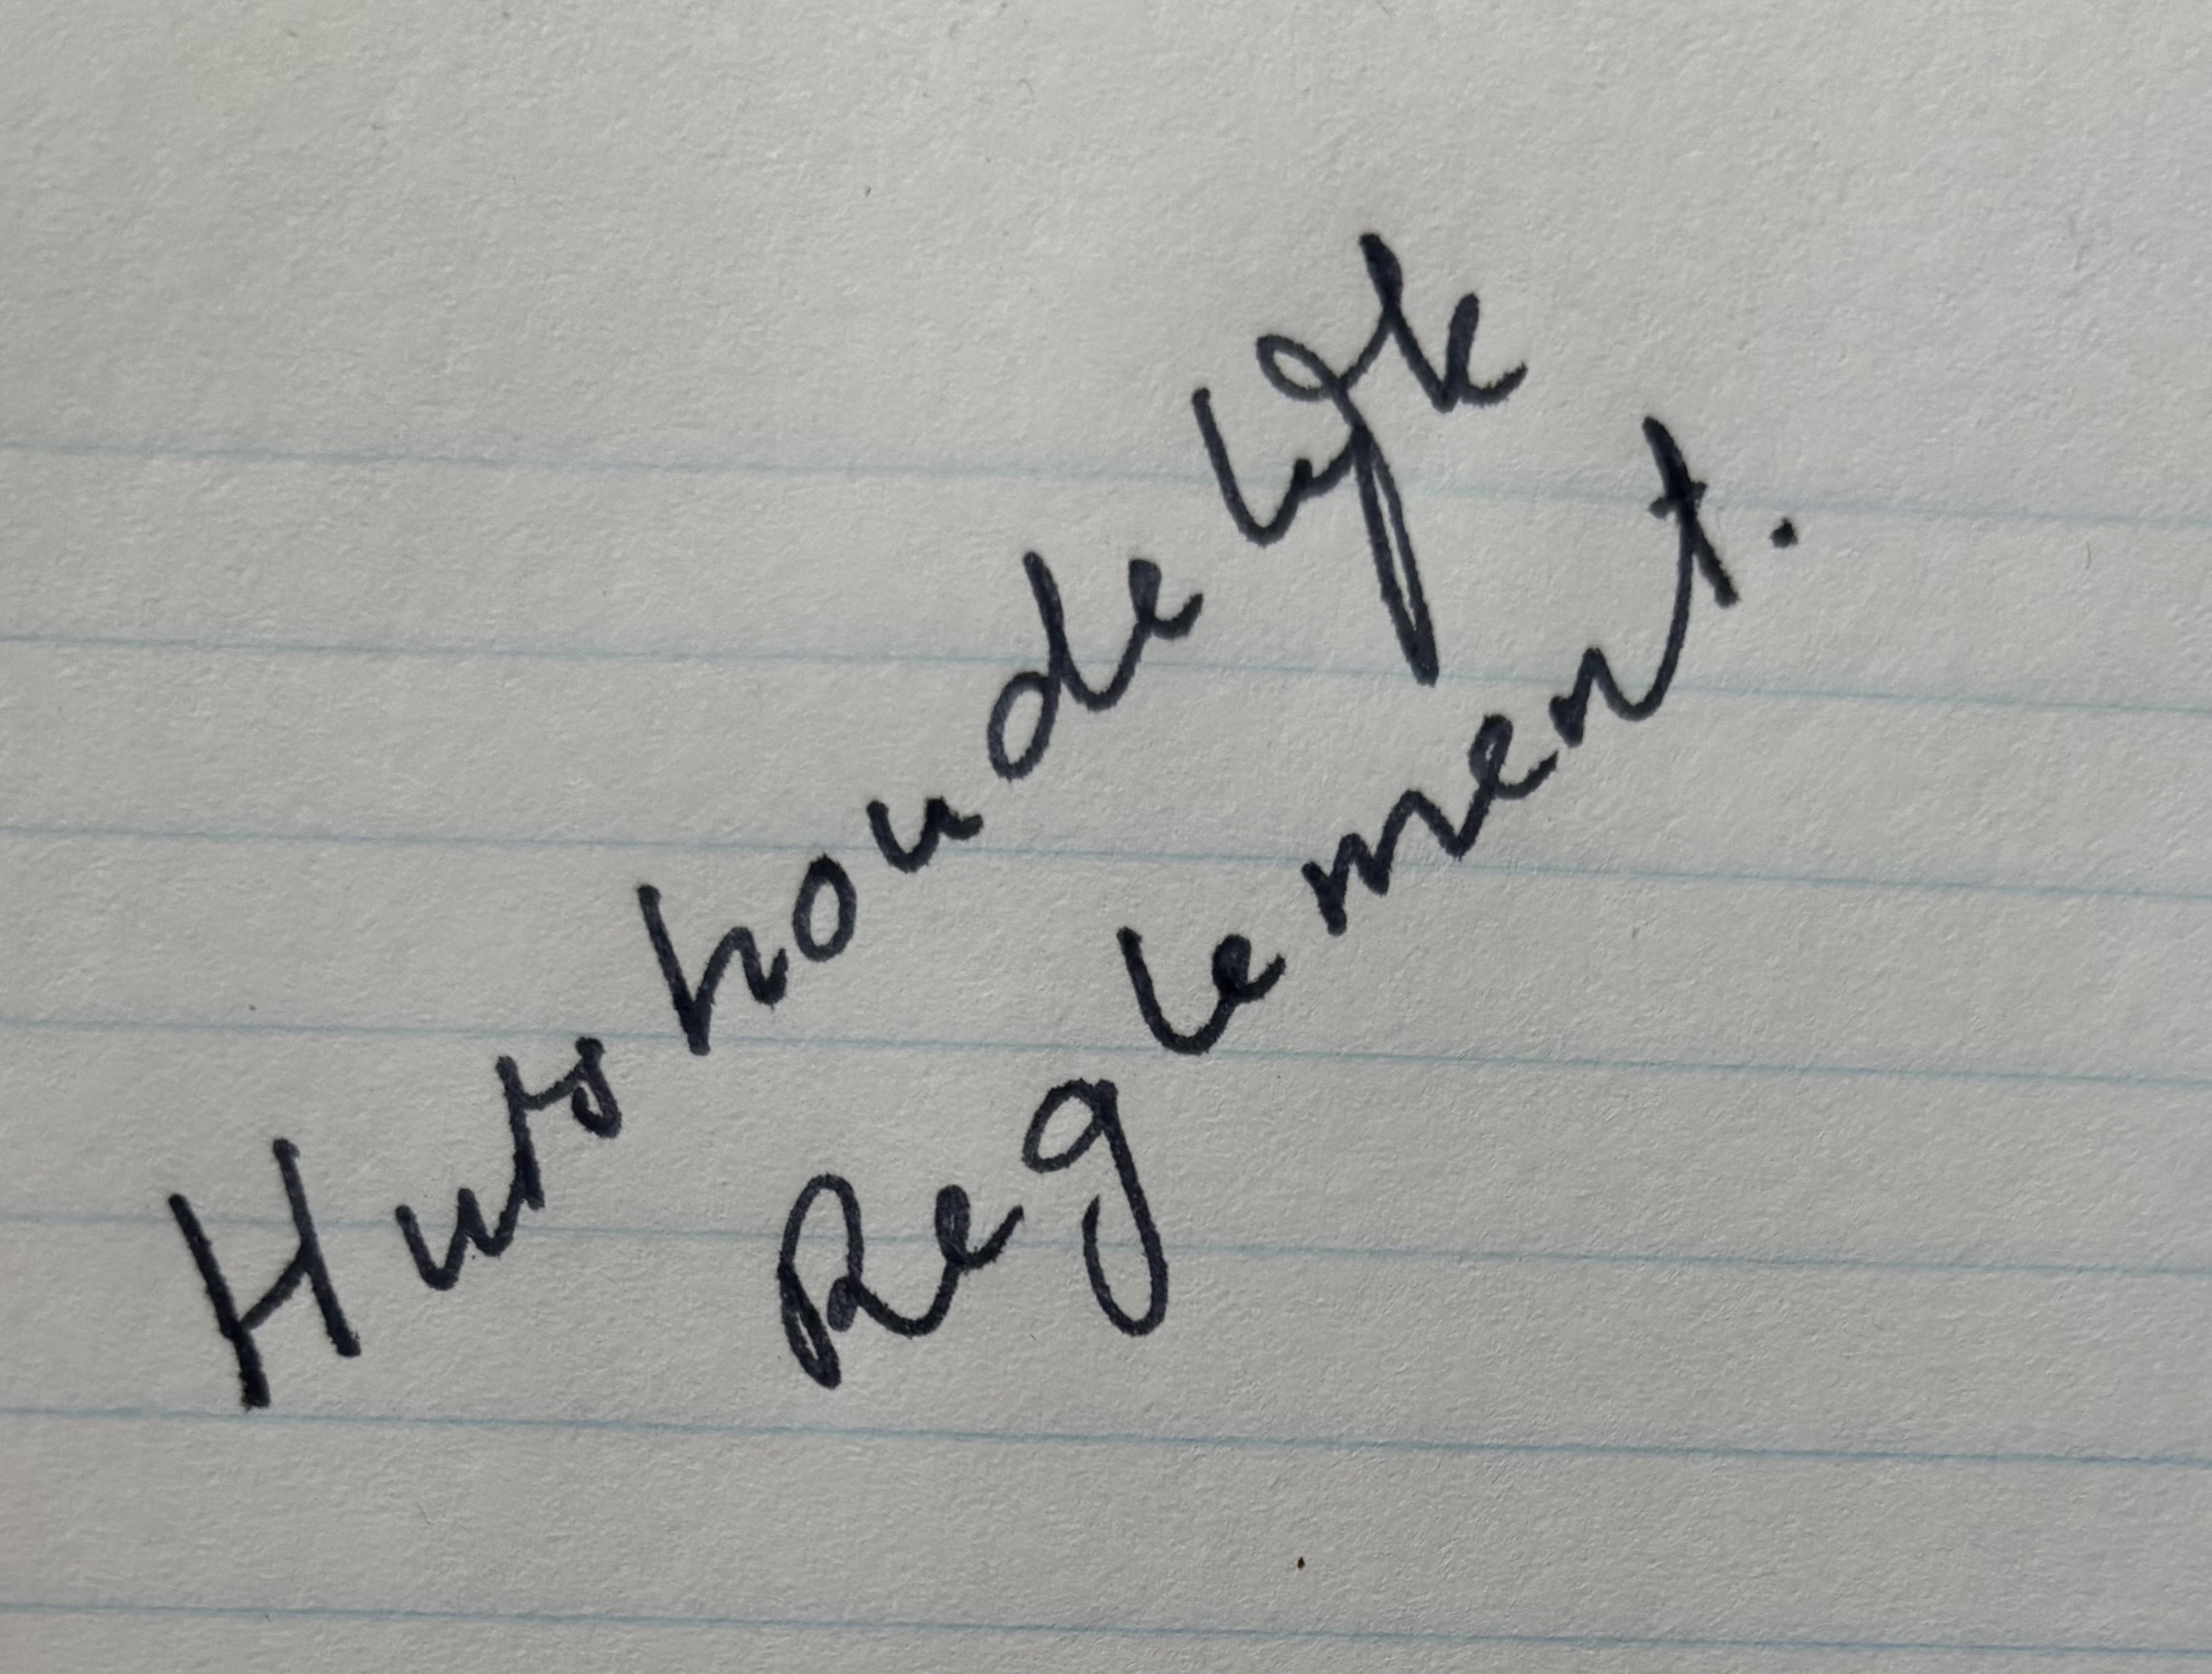 Huishoudelijk
Reglement.